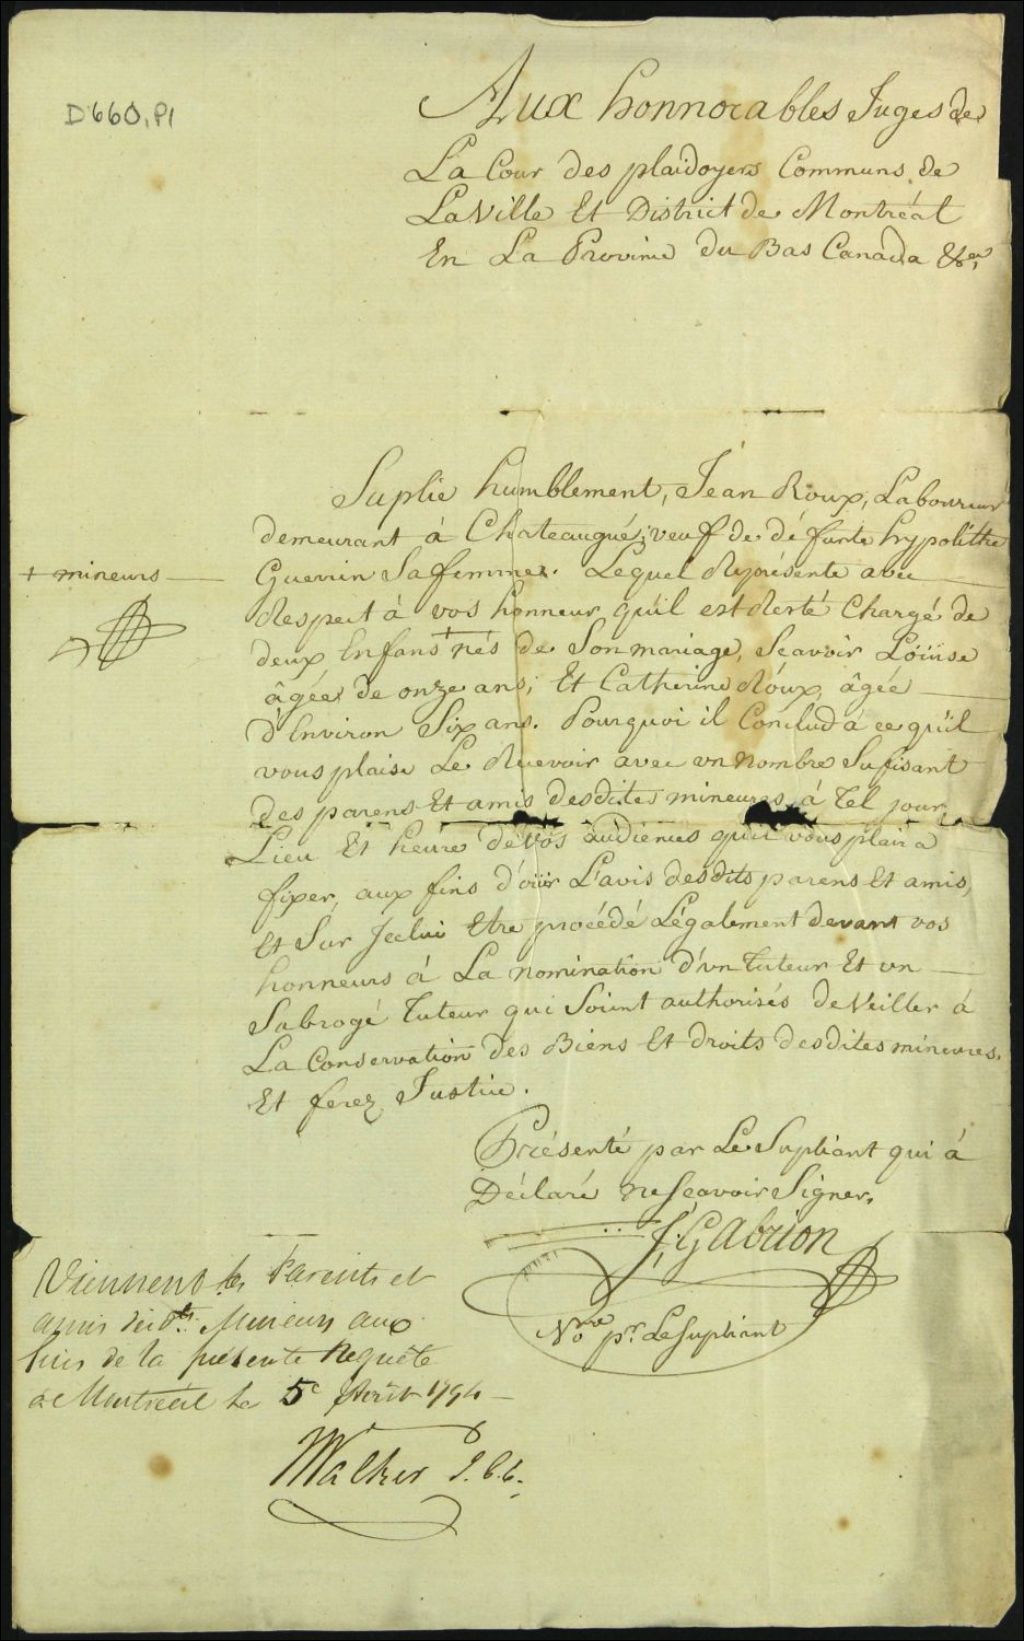 D660,P1
Aux honnorables Juges de
La Cour des plaidoyers Communs de
La Ville Et District de Montréal
En La Province du Bas Canada &ca,
Suplie humblement, Jean Roux, Laboureur
demeurant à Chateaugué; veuf de défunte hypolithe
Guerin Sa femme. Lequel Représente avec
Respect à vos honneur qu'il est Resté Chargé de
+ mineurs
deux Enfans + nés de Son mariage, Scavoir Loüise
âgée de onze ans; Et Catherine Roux, âgée
d'Environ Six ans. Pourquoi il Conclud a ce qu'il
vous plaise Le Recevoir avec un nombre Sufisant
des parens Et amis desdites mineures, à Tel jour
Lieu Et heure de vos audiences qu'il vous plaira
fixer, aux fins d'oüir L'avis desdits parens Et amis,
Et Sur Jcelui Etre procédé Légalement devant vos
honneurs à La nomination d'un Tuteur Et un
Sabrogé Tuteur qui Soient authorisés de Veiller à
La Conservation des Biens Et droits desdites mineures.
Et ferez Justice.
Présenté par Le Supliant qui à
Déclaré ne Scavoir Signer.
J. GAbrion
Nore pr. Le Supliant
Viennent les Parents et
amis desdts. Mineurs aux
fins de la présente Requête
à Montréal le 5e Août 1794
Walker J.C.C.